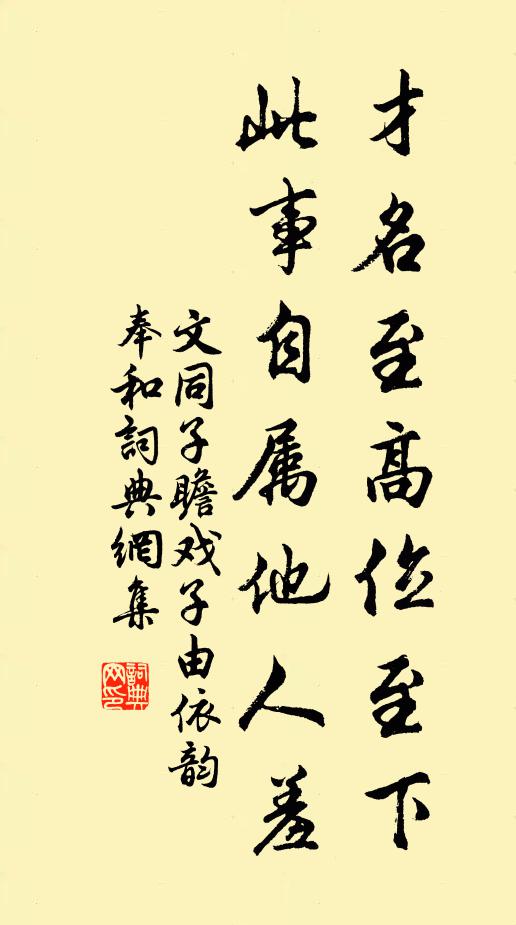 才名至高位至下
此事自属他人羞
文同子瞻戏子由依韵
奉和詞典網集
詞典
网印